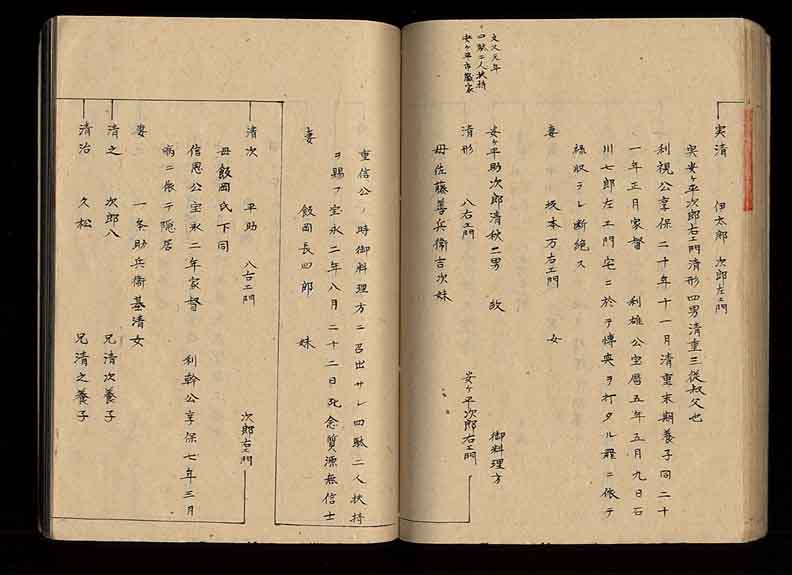 実清 伊太郎 次郎左エ門
実安ヶ平次郎右エ門清形四男清重三従叔父也
利視公享保二十年十一月清重末期養子同二十
一年正月家督 利雄公宝暦五年五月九日石
川七郎左エ門宅ニ於テ博奕ヲ打タル罪ニ依テ
禄収ラレ断絶ス
妻 坂本万右エ門 女
安ヶ平助次郎清秋二男 故 御料理方
文久元年
四駄二人扶持
安ヶ平市蔵家
清形 八右エ門 安ヶ平次郎右エ門
母佐藤善兵衛吉次妹
重信公ノ時御料理方ニ召出サレ四駄二人扶持
ヲ賜フ宝永二年八月二十二日死念質源無信士
妻 飯岡長四郎 妹
清次 平助 八右エ門 次郎右エ門
母飯岡氏下同
信恩公宝永二年家督 利幹公享保七年三月
病ニ依テ隠居
妻 一条助兵衛基清女
清之 次郎八 兄清次養子
清治 久松 兄清之養子